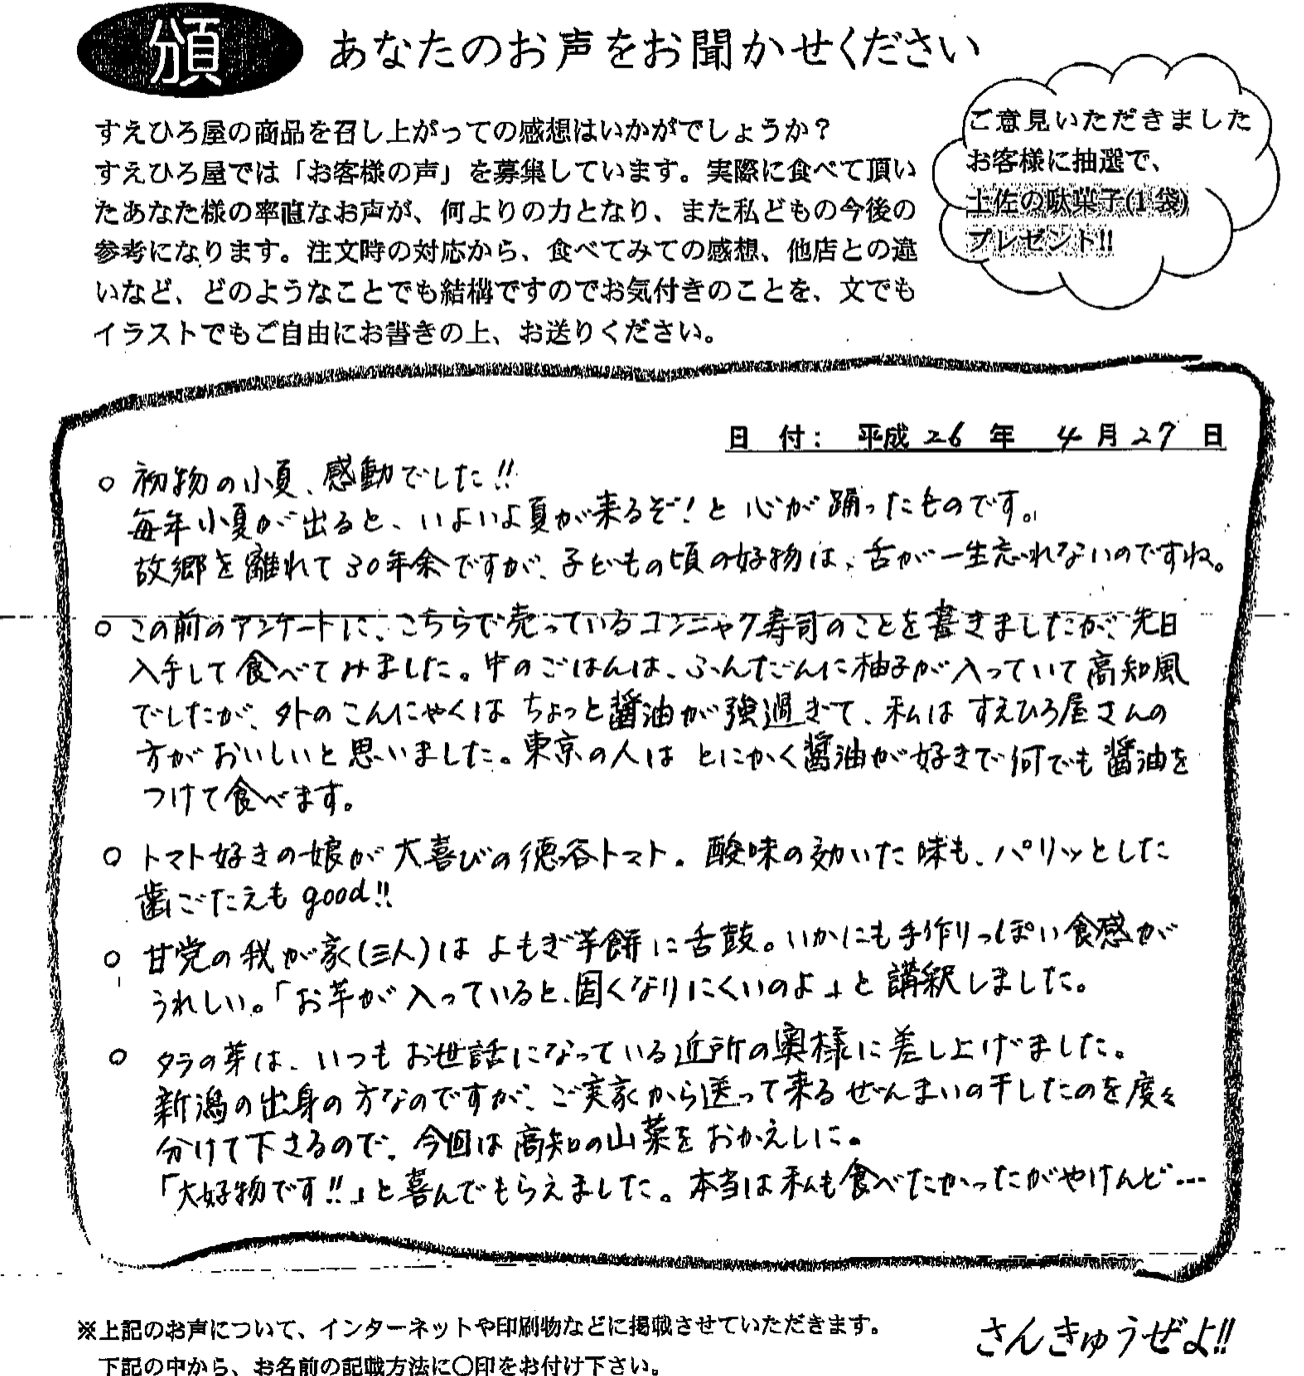 頒 あなたのお声をお聞かせください
すえひろ屋の商品を召し上がっての感想はいかがでしょうか？
すえひろ屋では「お客様の声」を募集しています。実際に食べて頂い
たあなた様の率直なお声が、何よりの力となり、また私どもの今後の
参考になります。注文時の対応から、食べてみての感想、他店との違
いなど、どのようなことでも結構ですのでお気付きのことを、文でも
イラストでもご自由にお書きの上、お送りください。
ご意見いただきました
お客様に抽選で、
土佐の駄菓子(1袋)
プレゼント!!
日 付： 平成 26 年 4 月 27 日
○ 初物の小夏、感動でした!!
毎年小夏が出ると、いよいよ夏が来るぞ！と心が踊ったものです。
故郷を離れて30年余ですが、子どもの頃の好物は、舌が一生忘れないのですね。
○ この前のアンケートに、こちらで売っているコンニャク寿司のことを書きましたが、先日
入手して食べてみました。中のごはんは、ふんだんに柚子が入っていて高知風
でしたが、外のこんにゃくはちょっと醤油が強過ぎて、私はすえひろ屋さんの
方がおいしいと思いました。東京の人はとにかく醤油が好きで何でも醤油を
つけて食べます。
○ トマト好きの娘が大喜びの徳谷トマト。酸味の効いた味も、パリッとした
歯ごたえもgood!!
○ 甘党の我が家(三人)はよもぎ芋餅に舌鼓。いかにも手作りっぽい食感が
うれしい。「お芋が入っていると、固くなりにくいのよ」と講釈しました。
○ タラの芽は、いつもお世話になっている近所の奥様に差し上げました。
新潟の出身の方なのですが、ご実家から送って来るぜんまいの干したのを度々
分けて下さるので、今回は高知の山菜をおかえしに。
「大好物です!!」と喜んでもらえました。本当は私も食べたかったがやけんど…
※上記のお声について、インターネットや印刷物などに掲載させていただきます。
下記の中から、お名前の記載方法に〇印をお付け下さい。
さんきゅうぜよ!!